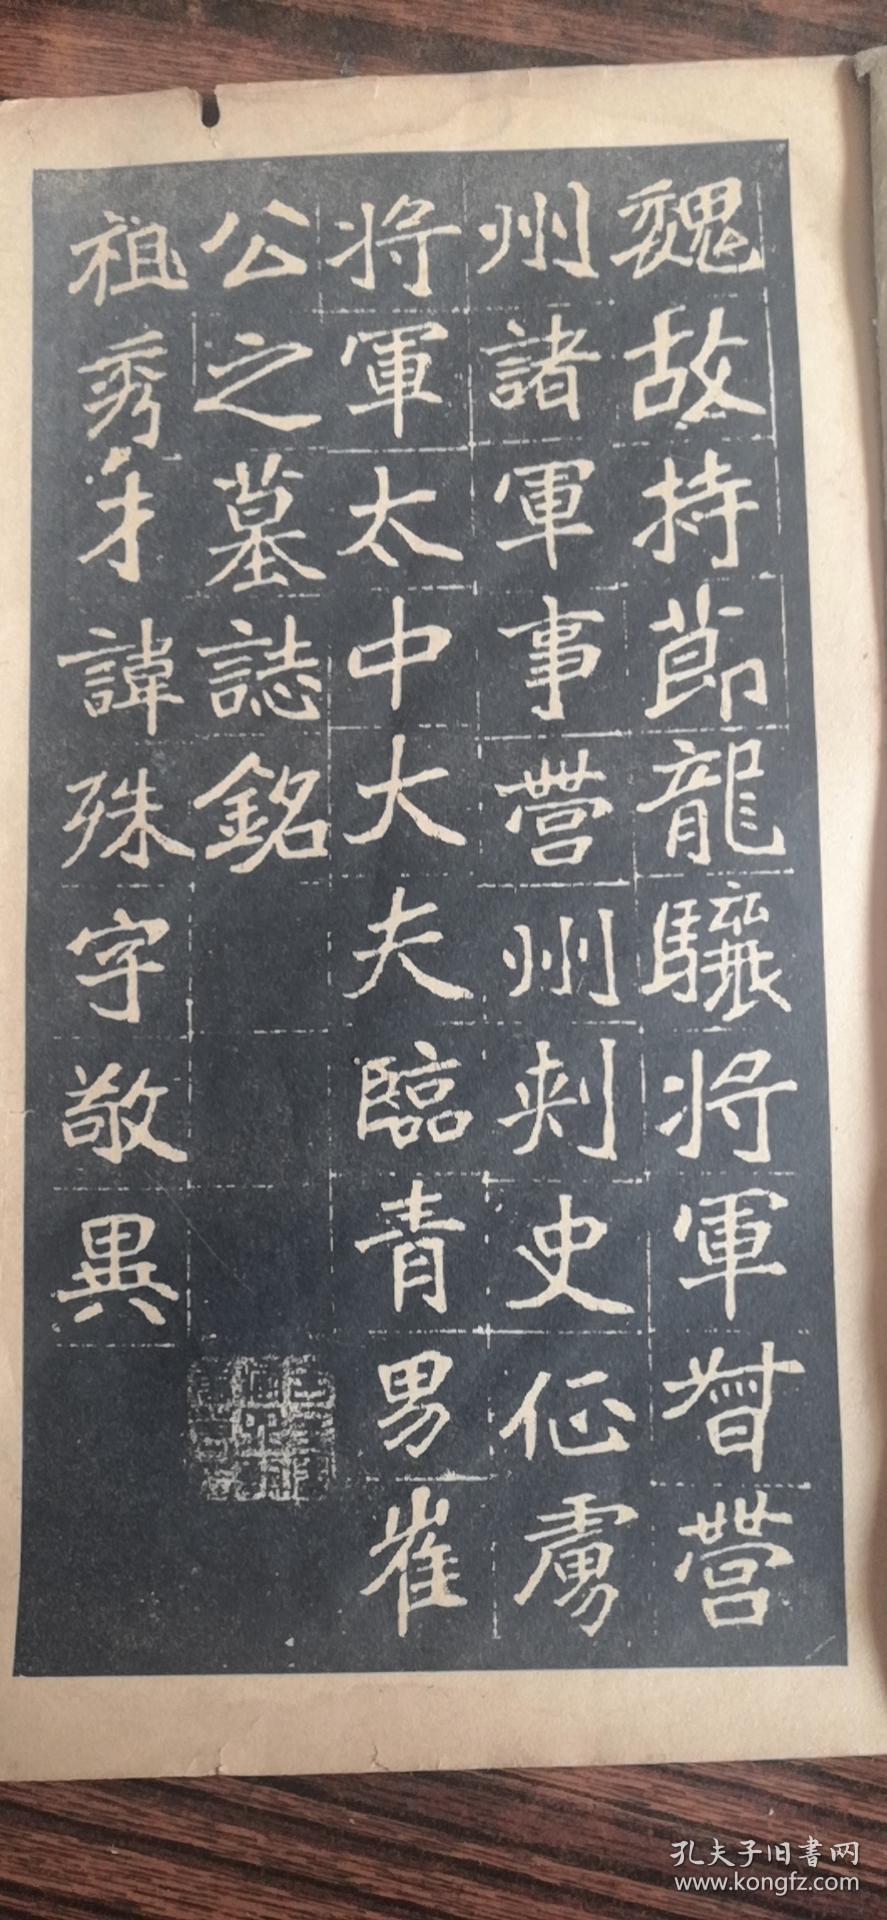 魏故持節龍驤将軍督營
州諸軍事營州刾史征虜
将軍太中大夫臨青男崔
公之墓誌銘
祖秀才諱殊字敬異
孔夫子旧書网
www.kongfz.com